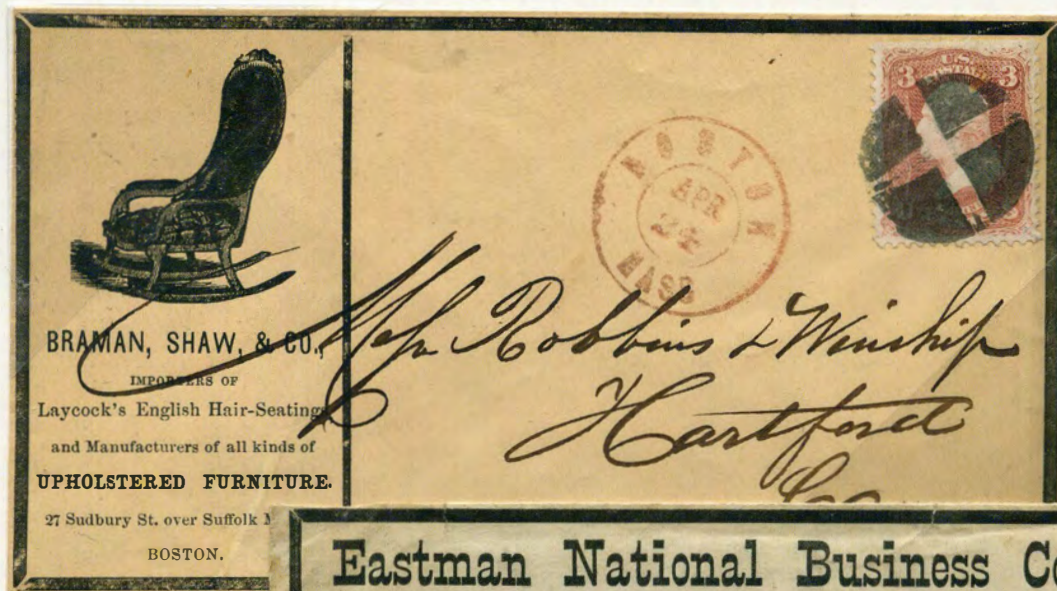 BRAMAN, SHAW, & CO.,
IMPORTERS OF
Laycock's English Hair-Seating
and Manufacturers of all kinds of
UPHOLSTERED FURNITURE.
27 Sudbury St. over Suffolk
BOSTON.
BOSTON
APR
24
MASS
3 U.S. 3
POSTAGE
Robbins & Winship
Hartford
Eastman National Business